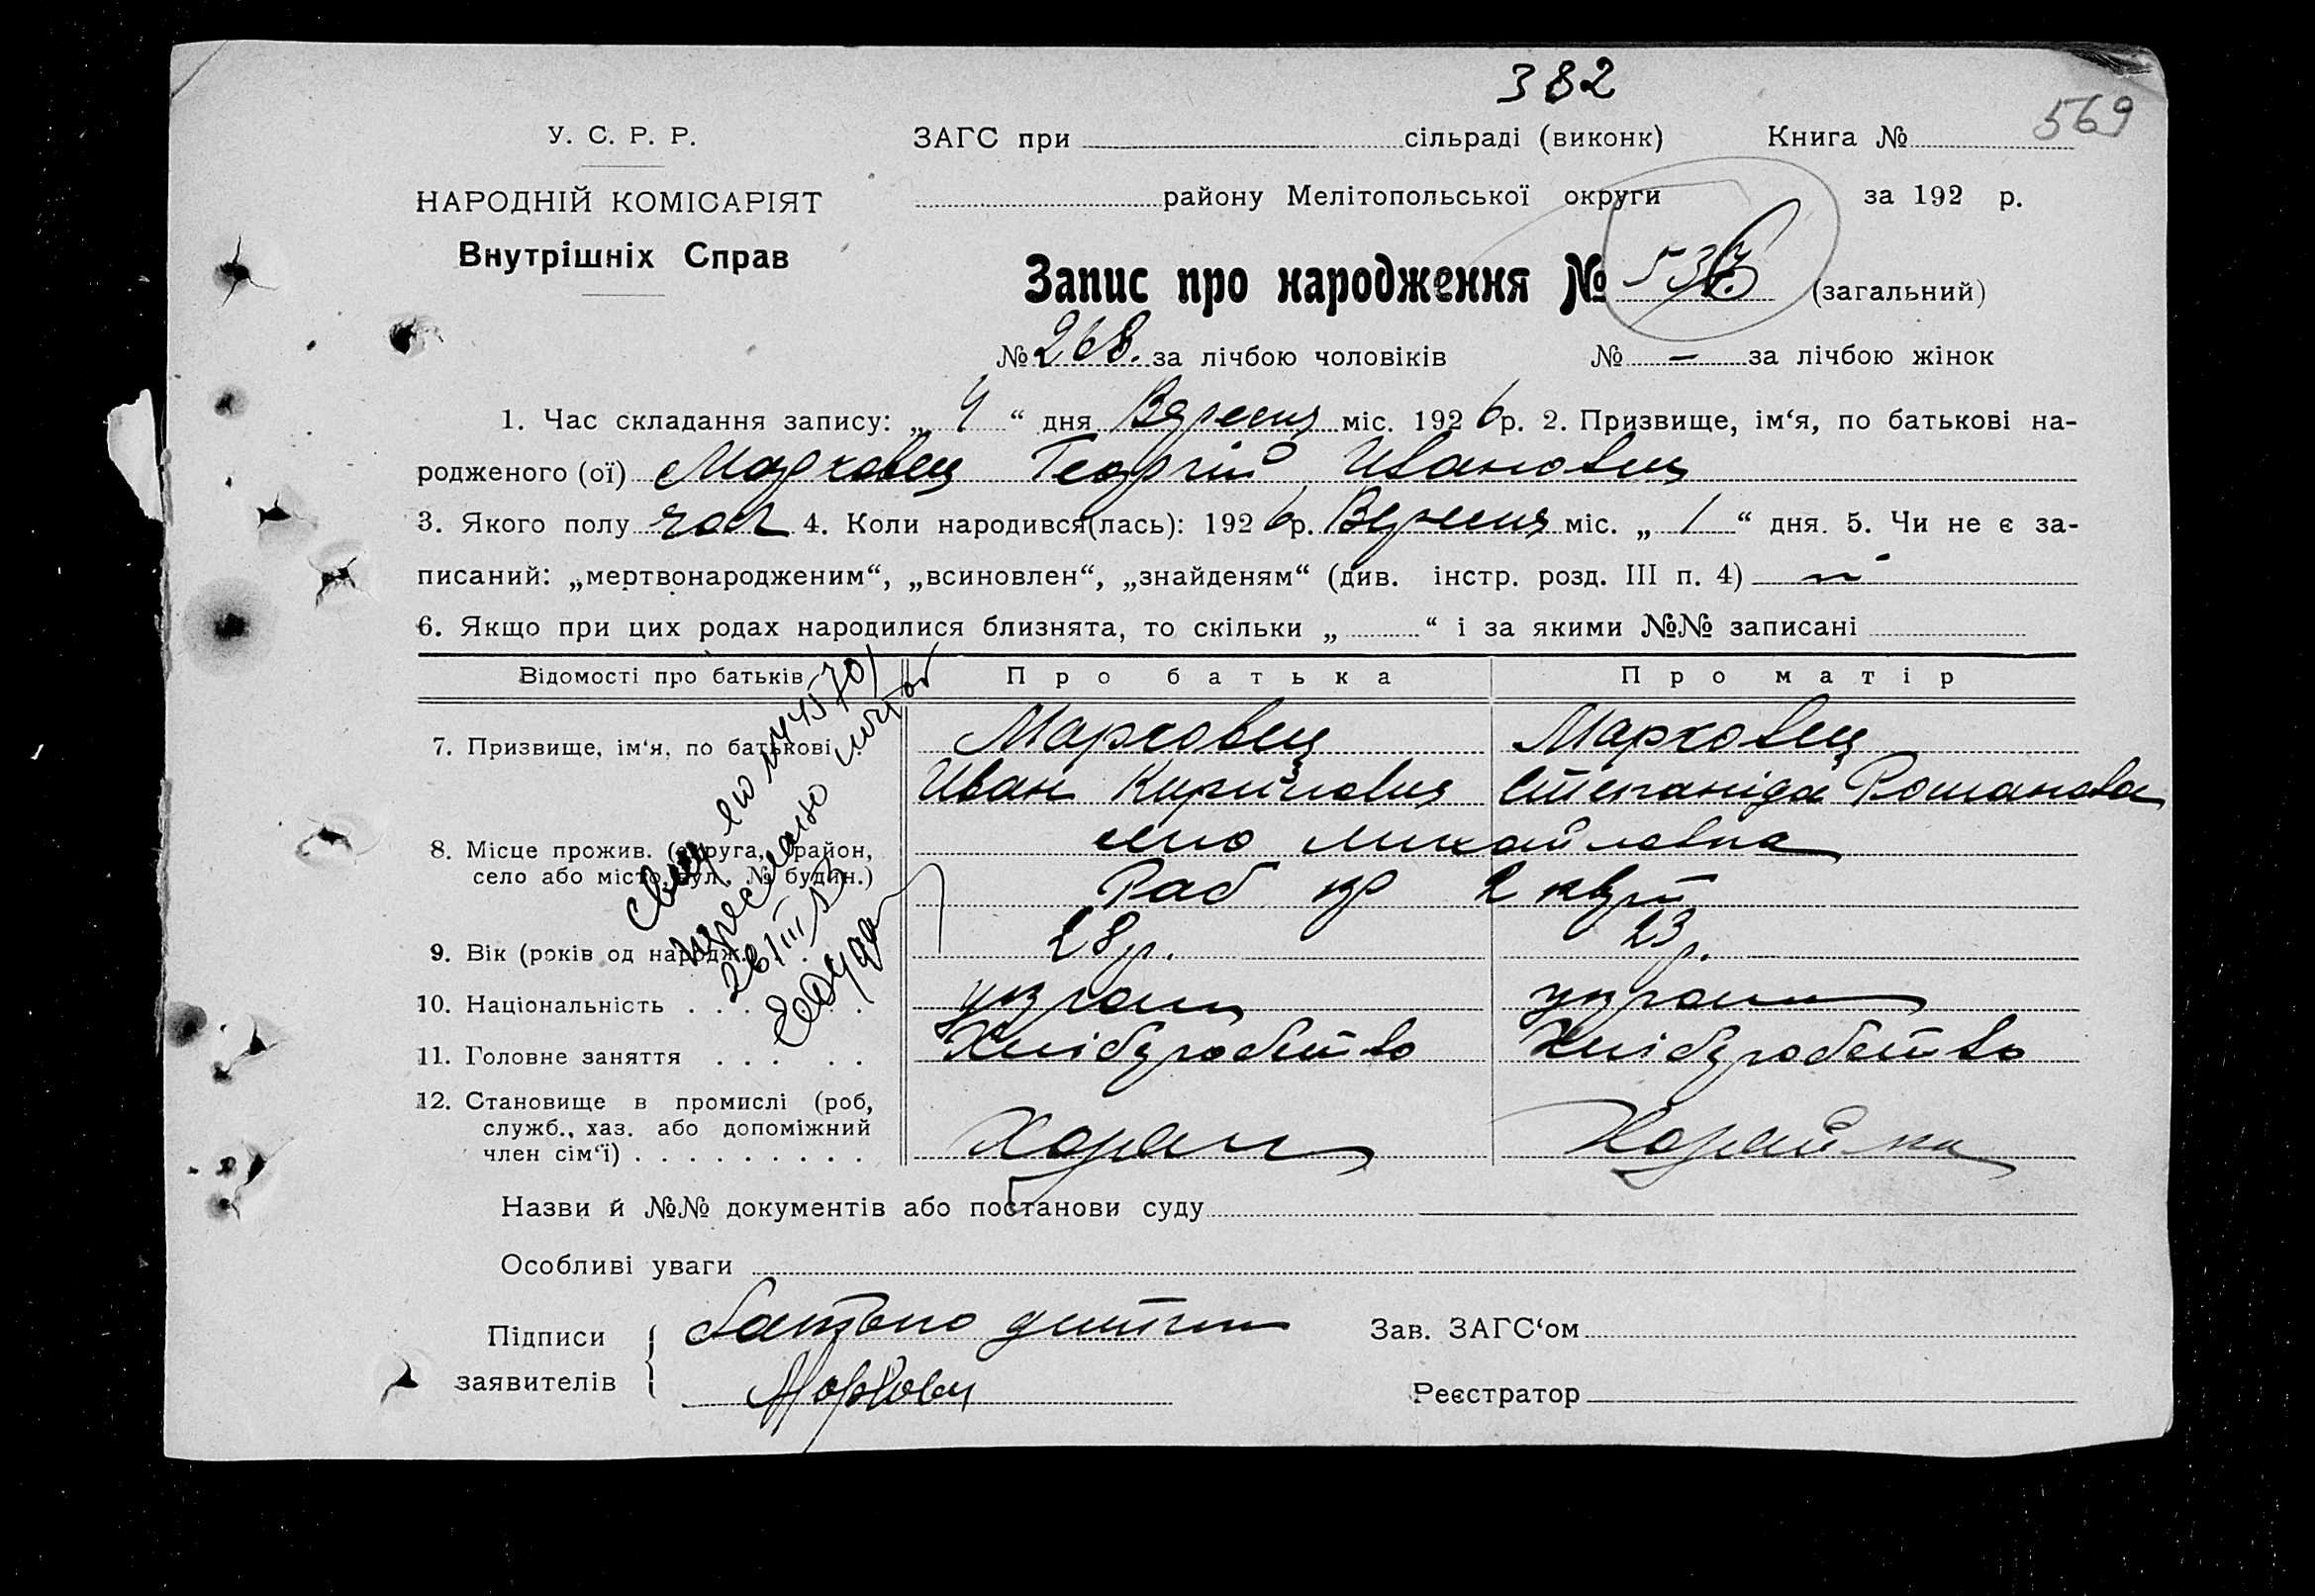 382
569
У. С. Р. Р.
ЗАГС при сільраді (виконк) Книга №
НАРОДНІЙ КОМІСАРІЯТ
району Мелітопольської округи за 192 р.
Внутрішніх Справ
Запис про народження № (загальний)
№ 268. за лічбою чоловіків № — за лічбою жінок
1. Час складання запису: „ 4 “ дня Вересня міс. 1926 р. 2. Призвище, ім‘я, по батькові на-
родженого (ої) Марковец Георгій Иванович
3. Якого полу чол 4. Коли народився(лась): 1926 р. Вересня міс. „ 1 “ дня. 5. Чи не є за-
писаний: „мертвонародженим“, „всиновлен“, „знайденям“ (див. інстр. розд. III п. 4)
6. Якщо при цих родах народилися близнята, то скільки „ “ і за якими №№ записані
Відомості про батьків Про батька Про матір
7. Призвище, ім‘я, по батькові Марковец Марковец
Иван Кирилович Степаніда Романова
8. Місце прожив. (округа, район, село Михайловка
село або місто, вул. № будин.)
9. Вік (років од народж.) 28 р. 23 р.
10. Національність . . . . . . украин украин
11. Головне заняття . . . . . Хлібуробство Хлібуробство
12. Становище в промислі (роб,
служб., хаз. або допоміжний
член сім‘ї) . . . . . . . . . Хозяин Хозяйка
Назви й №№ документів або постанови суду
Особливі уваги
Підписи Батько
Зав. ЗАГС‘ом
заявителів Марковец
Реєстратор